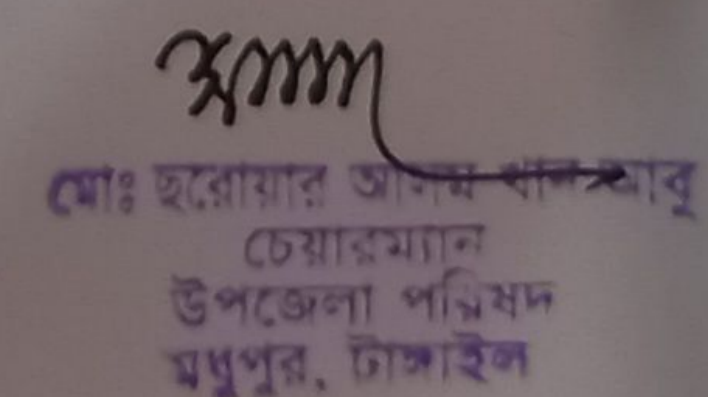 মোঃ ছরোয়ার আলম খান আবু
চেয়ারম্যান
উপজেলা পরিষদ
মধুপুর, টাঙ্গাইল